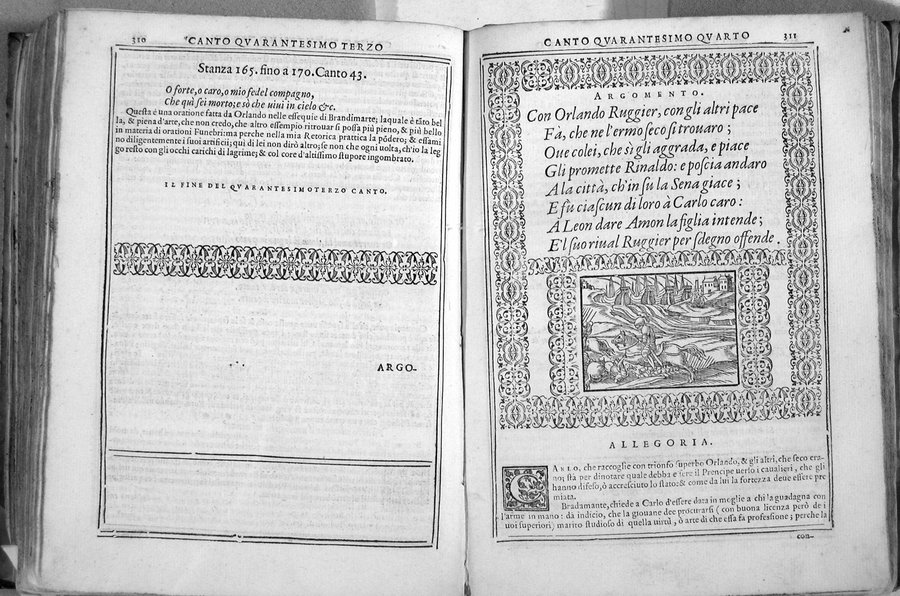 310 CANTO QVARANTESIMO TERZO
Stanza 165. fino a 170. Canto 43.
O forte, o caro, o mio fedel compagno,
Che quì sei morto; e sò che uiui in cielo &c.
Questa è una oratione fatta da Orlando nelle essequie di Brandimarte; laquale è tãto bel
la, & piena d'arte, che non credo, che altro essempio ritrouar si possa più pieno, & più bello
in materia di orationi Funebri: ma perche nella mia Retorica prattica la põdero; & essami
no diligentemente i suoi artificij; qui di lei non dirò altro; se non che ogni uolta, ch'io la leg
go resto con gli occhi carichi di lagrime; & col core d'altissimo stupore ingombrato.
IL FINE DEL QVARANTESIMOTERZO CANTO.
ARGO-
CANTO QVARANTESIMO QVARTO 311
ARGOMENTO.
Con Orlando Ruggier, con gli altri pace
Fà, che ne l'ermo seco si trouaro;
Oue colei, che sì gli aggrada, e piace
Gli promette Rinaldo: e poscia andaro
A la città, ch'in su la Sena giace;
E fù ciascun di loro à Carlo caro:
A Leon dare Amon la figlia intende;
E'l suo riual Ruggier per sdegno offende.
ALLEGORIA.
CARLO, che raccoglie con trionfo superbo Orlando, & gli altri, che seco era-
no; stà per dinotare quale debba essere il Prencipe uerso i caualieri, che gli
hanno difeso, ò accresciuto lo stato: & come da lui la fortezza deue essere pre
miata.
Bradamante, chiede a Carlo d'essere data in moglie a chi la guadagna con
l'arme in mano: dà indicio, che la giouane dee procurarsi (con buona licenza però de i
suoi superiori) marito studioso di quella uirtù, ò arte di che essa fa professione; perche la
con-